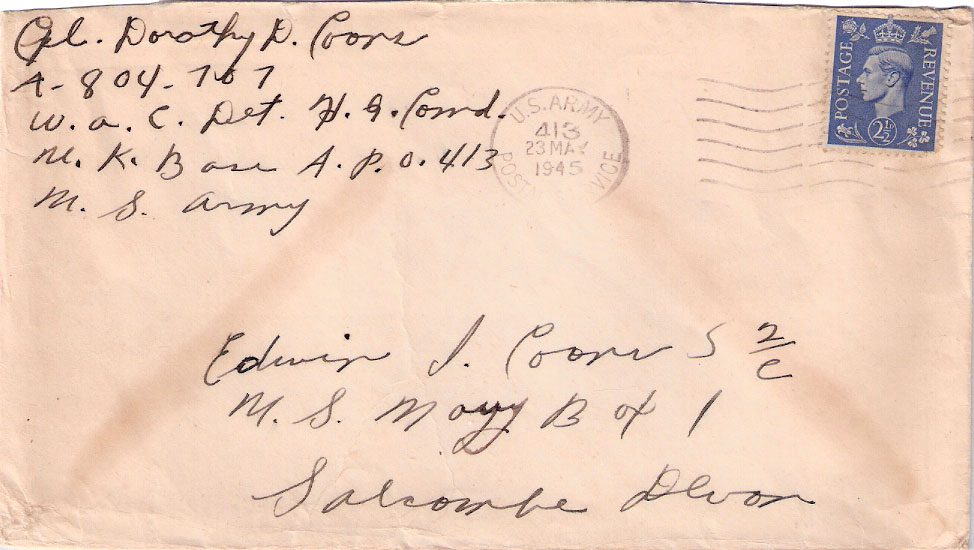 Cpl. Dorothy D. Coons
A-804-767
W.A.C. Det. H.Q. Comd.
U.K. Base A.P.O. 413
U.S. Army
U.S. ARMY
413
23 MAY
1945
POSTAGE REVENUE
2½D
Edwin J. Coons S 2/c
U.S. Navy Box 1
Salcombe Devon